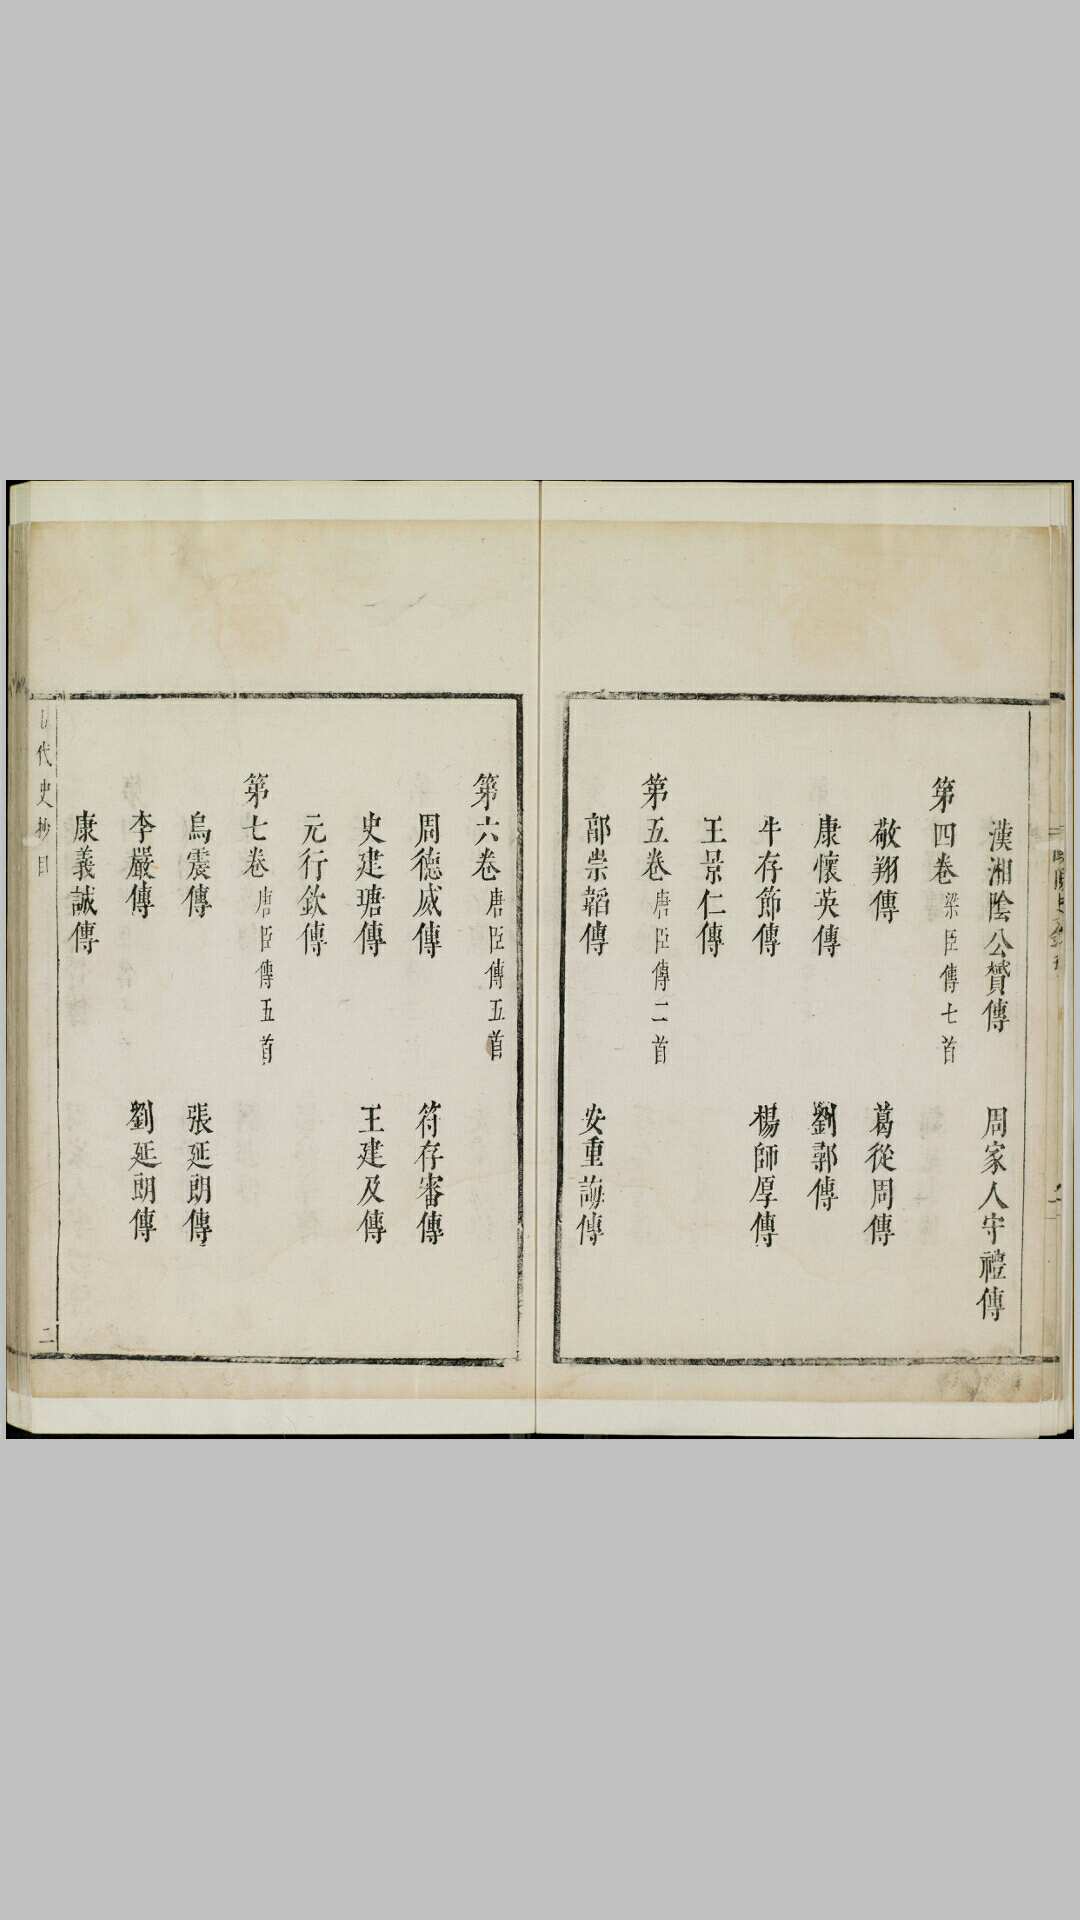 漢湘陰公贇傳　周家人守禮傳
第四卷梁臣傳七首
敬翔傳　葛從周傳
康懷英傳　劉鄩傳
牛存節傳　楊師厚傳
王景仁傳
第五卷唐臣傳二首
郭崇韜傳　安重誨傳
第六卷唐臣傳五首
周德威傳　符存審傳
史建瑭傳　王建及傳
元行欽傳
第七卷唐臣傳五首
烏震傳　張延朗傳
李嚴傳　劉延朗傳
康義誠傳
代史抄目　二